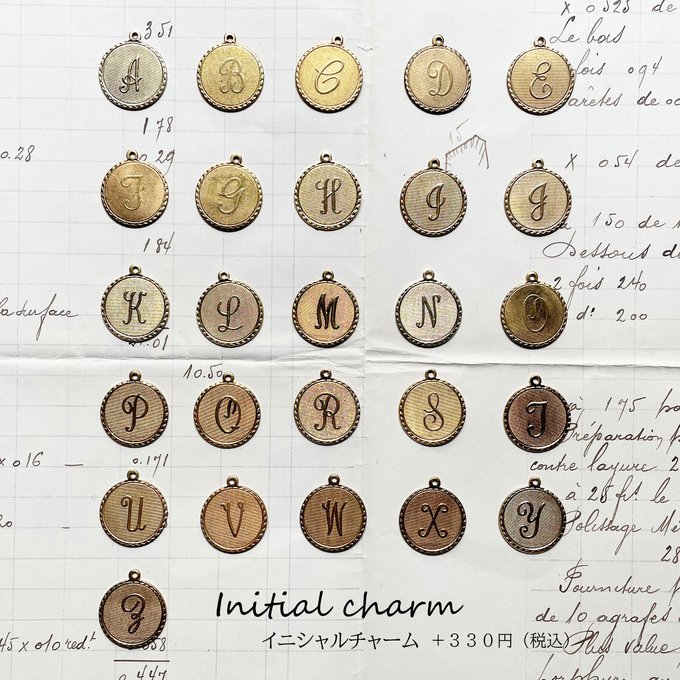 351
A B C D E
178
0.28
0.29
F G H I J
15
184
K L M N O
la surface
01
10.50
P Q R S T
x 016 — 0.171
U V W X Y
20
Z
45 x 010 redt
058
0.447
x 0525 de
Le bois
fois 094
arêtes de
x 054 de
150 de
Dessous de
2 fois 240
d° 200
à 175
Préparation
contre layure 2
à 25 frs. le
Polissage
28
Fourniture
de 10 agrafes
Plus value
Initial charm
イニシャルチャーム +330円(税込)